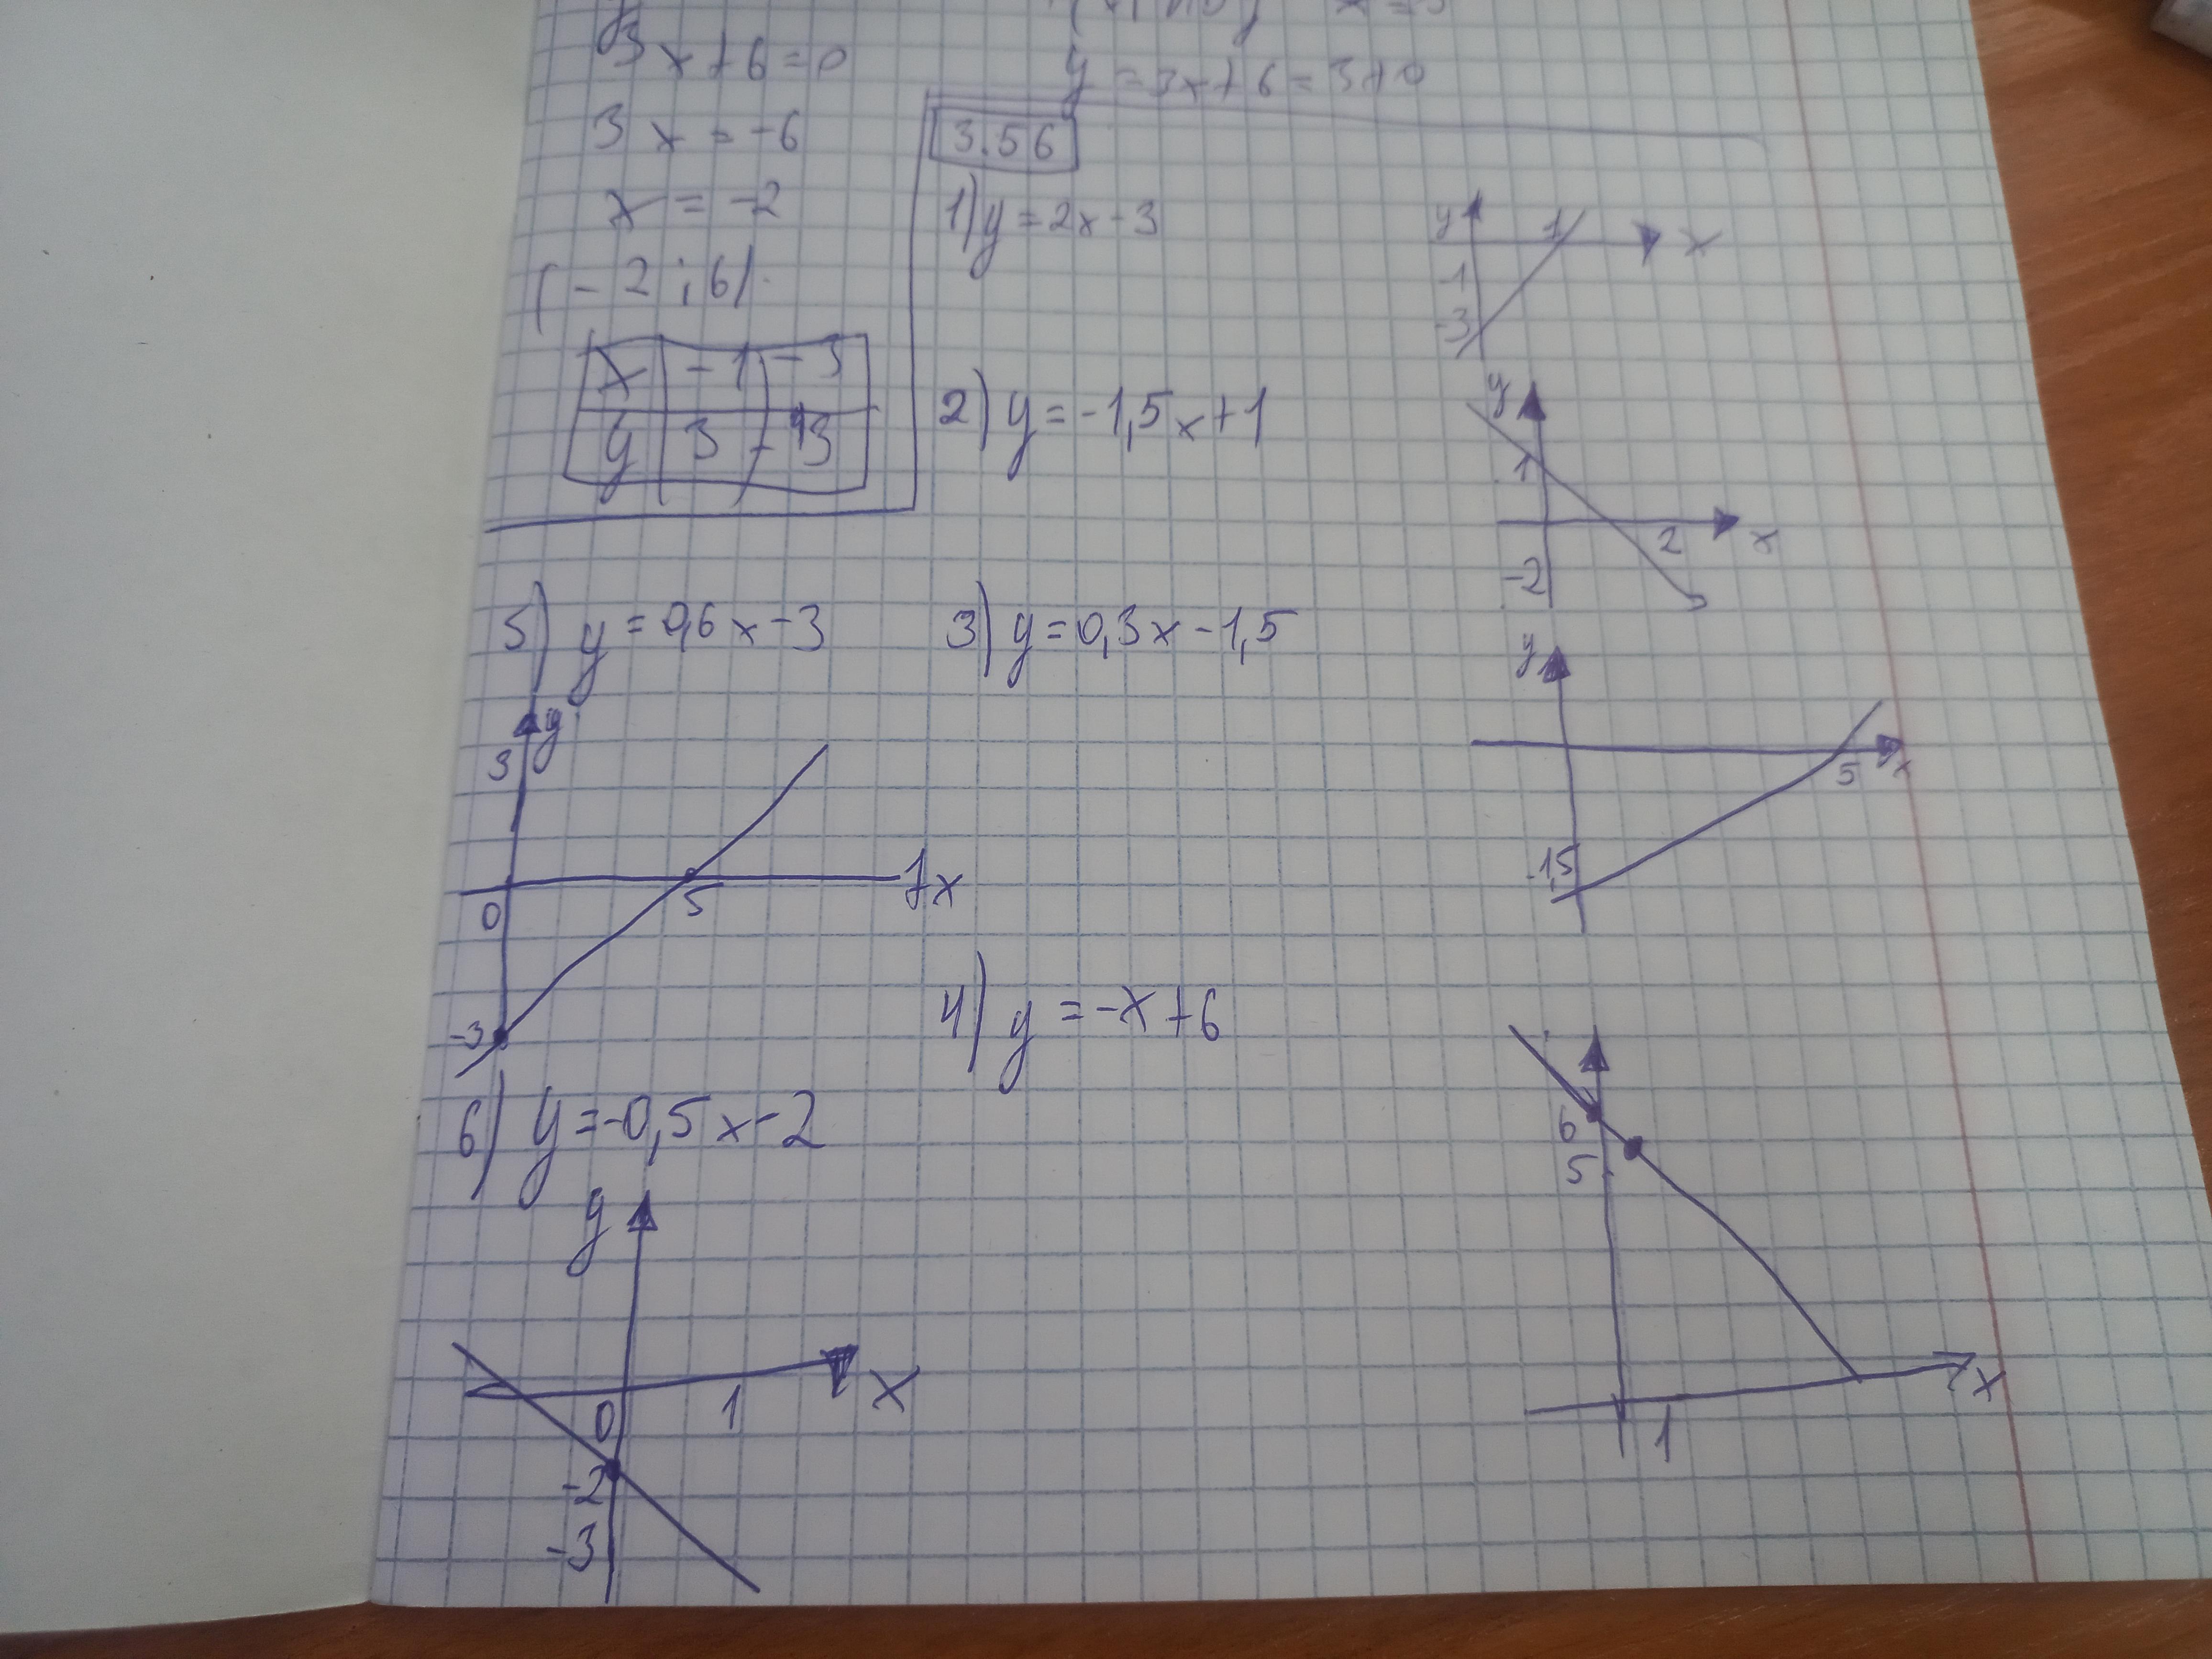 3x+6=0
3x=-6
x=-2
(-2;6)
x -1 -3
y 3
y=3x+6=3+0
3.56
1) y=2x-3
y
1
x
1
-3
2) y=-1,5x+1
y
1
2
x
-2
3) y=0,3x-1,5
y
5
x
-1,5
4) y=-x+6
6
5
1
x
5) y=0,6x-3
y
3
0
5
x
-3
6) y=-0,5x-2
y
x
0
1
-2
-3